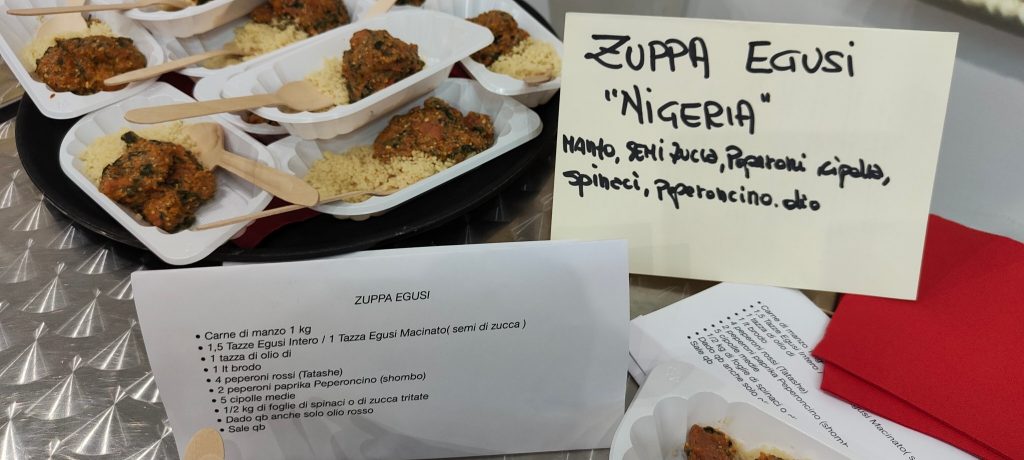 ZUPPA EGUSI
"NIGERIA"
MANZO, SEMI ZUCCA, PEPERONI CIPOLLA,
SPINACI, PEPERONCINO. OLIO
ZUPPA EGUSI
• Carne di manzo 1 kg
• 1,5 Tazze Egusi Intero / 1 Tazza Egusi Macinato( semi di zucca )
• 1 tazza di olio di
• 1 lt brodo
• 4 peperoni rossi (Tatashe)
• 2 peperoni paprika Peperoncino (shombo)
• 5 cipolle medie
• 1/2 kg di foglie di spinaci o di zucca tritate
• Dado qb anche solo olio rosso
• Sale qb
• Carne di manzo
• 1,5 Tazze Egusi Intero
• 1 tazza di olio di
• 1 lt brodo
• 4 peperoni rossi (Tatashe)
• 2 peperoni paprika Peperoncino (shombo
• 5 cipolle medie
• 1/2 kg di foglie di spinaci o
• Dado qb anche solo
• Sale qb
Egusi Macinato( se